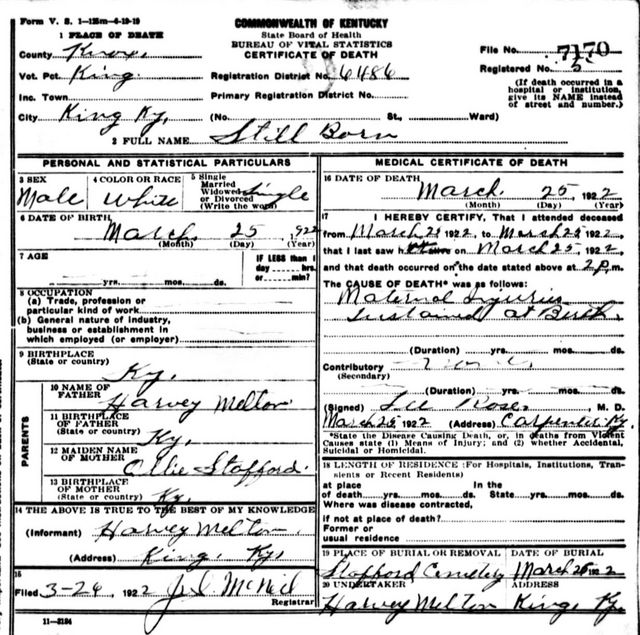 Form V. S. 1—125m—6-19-19
COMMONWEALTH OF KENTUCKY
State Board of Health
BUREAU OF VITAL STATISTICS
CERTIFICATE OF DEATH
1 PLACE OF DEATH
County Knox
File No. 7170
Vot. Pct King
Registration District No. 6486
Registered No. 5
Inc. Town
Primary Registration District No.
(If death occurred in a hospital or institution, give its NAME instead of street and number.)
City King Ky,
(No. St., Ward)
2 FULL NAME Still Born
PERSONAL AND STATISTICAL PARTICULARS
3 SEX Male
4 COLOR OR RACE White
5 Single Married Widowed or Divorced (Write the word) Single
6 DATE OF BIRTH March 25 1922
(Month) (Day) (Year)
7 AGE
yrs. mos. ds.
IF LESS than 1 day hrs. or min.?
8 OCCUPATION
(a) Trade, profession or particular kind of work
(b) General nature of industry, business or establishment in which employed (or employer)
9 BIRTHPLACE (State or country) Ky.
PARENTS
10 NAME OF FATHER Harvey Melton
11 BIRTHPLACE OF FATHER (State or country) Ky.
12 MAIDEN NAME OF MOTHER Ollie Stafford
13 BIRTHPLACE OF MOTHER (State or country) Ky.
14 THE ABOVE IS TRUE TO THE BEST OF MY KNOWLEDGE
(Informant) Harvey Melton
(Address) King, Ky,
15
Filed 3-26, 1922
Registrar
11—3184
MEDICAL CERTIFICATE OF DEATH
16 DATE OF DEATH March 25, 1922
(Month) (Day) (Year)
17 I HEREBY CERTIFY, That I attended deceased
from March 25 1922, to March 25 1922,
that I last saw h on March 25, 1922,
and that death occurred on the date stated above at 2 p.m.
The CAUSE OF DEATH* was as follows:
Maternal Injuries
Sustained at Birth.
(Duration) yrs. mos. ds.
Contributory
(Secondary)
(Duration) yrs. mos. ds.
(Signed) Rose, M. D.
March 25 1922 (Address) Carpenter Ky.
*State the Disease Causing Death, or, in deaths from Violent Causes state (1) Means of Injury; and (2) whether Accidental, Suicidal or Homicidal.
18 LENGTH OF RESIDENCE (For Hospitals, Institutions, Transients or Recent Residents)
at place of death yrs. mos. ds. In the State yrs. mos. ds.
Where was disease contracted,
if not at place of death?
Former or usual residence
19 PLACE OF BURIAL OR REMOVAL Stafford Cemetery
DATE OF BURIAL March 26 1922
20 UNDERTAKER Harvey Melton
ADDRESS King, Ky.